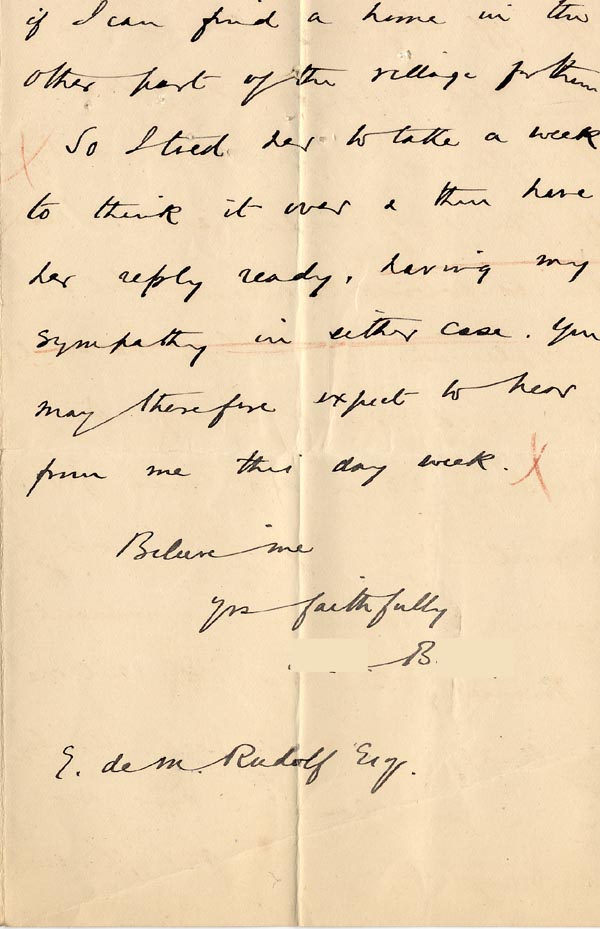 if I can find a home in the
other part of the village for them
So I tried her to take a week
to think it over & then have
her reply ready, having my
sympathy in either case. You
may therefore expect to hear
from me this day week.
Believe me
yrs faithfully
B.
E. de M. Rudolf Esq.